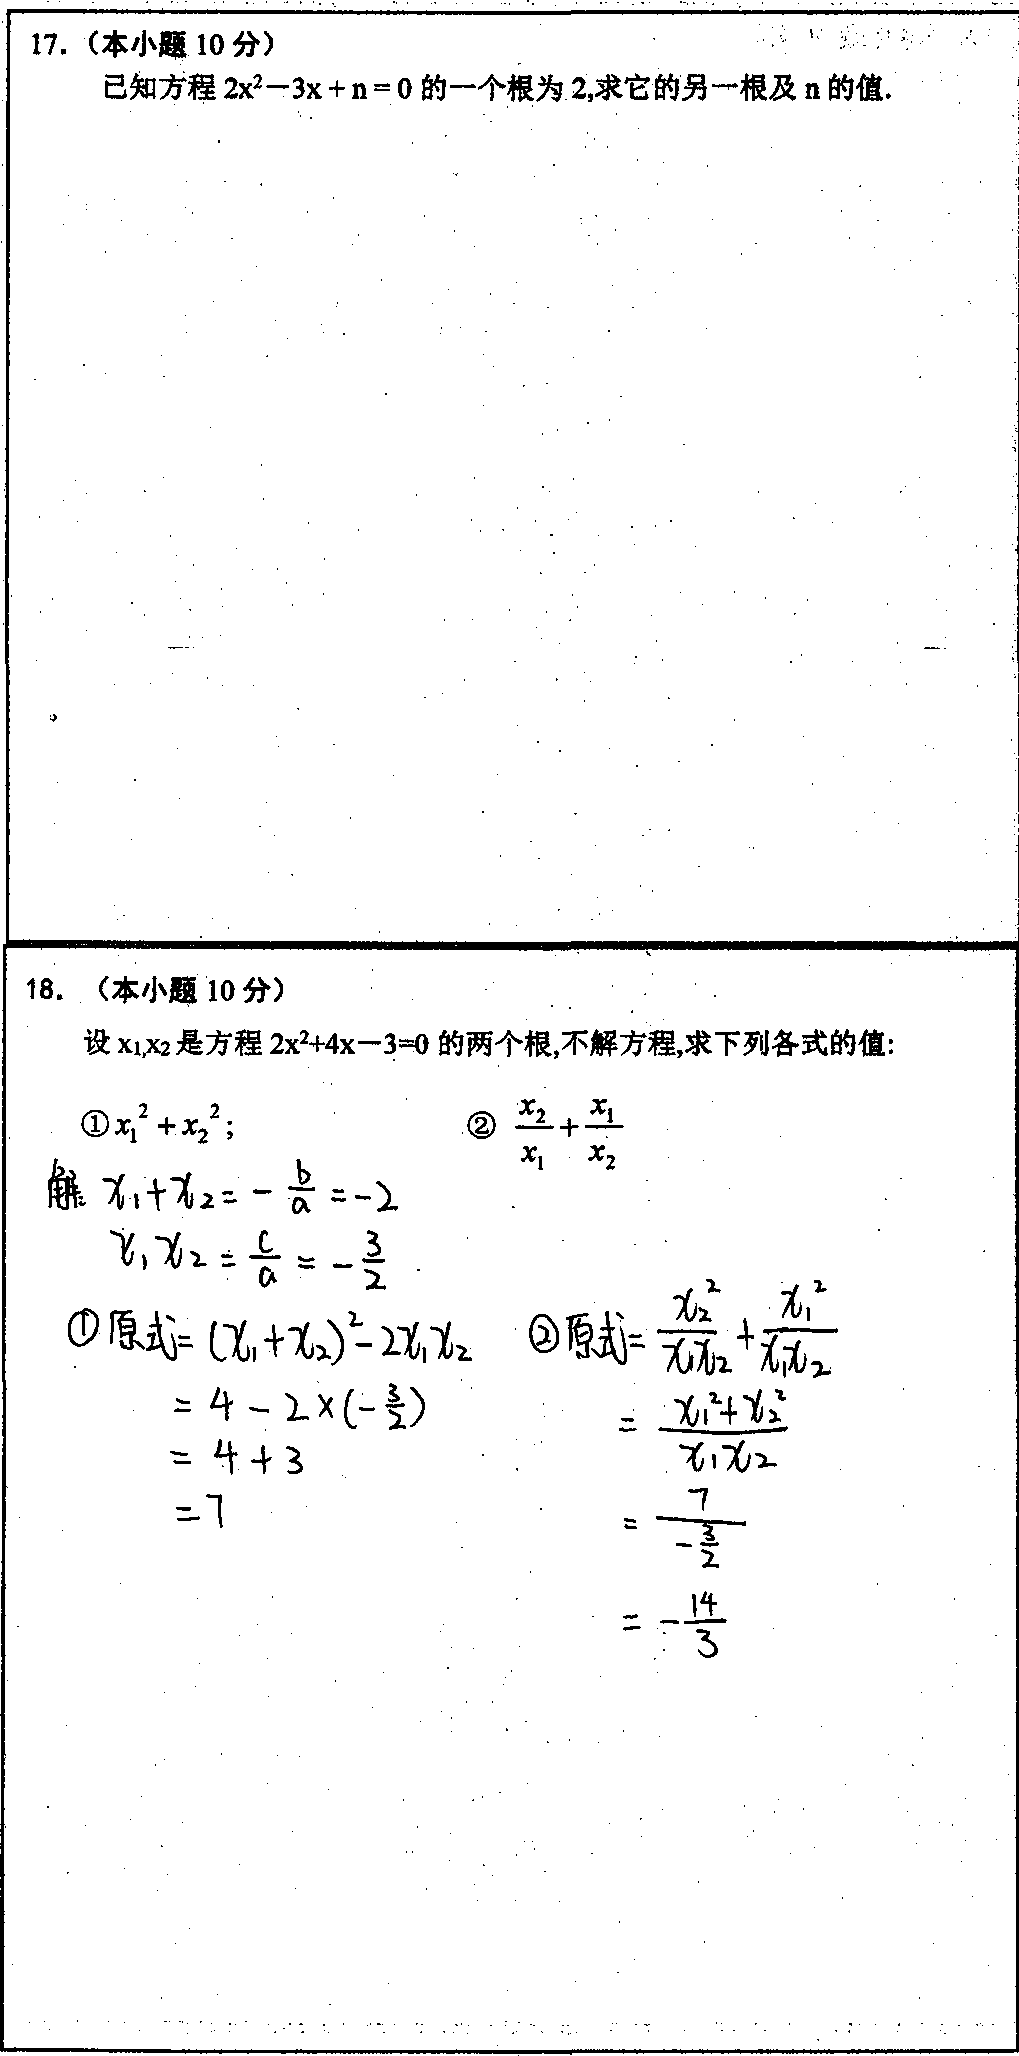 17.（本小题 10 分）
已知方程 2x²－3x + n = 0 的一个根为 2,求它的另一根及 n 的值.
18. （本小题 10 分）
设 x₁,x₂ 是方程 2x²+4x－3=0 的两个根,不解方程,求下列各式的值:
① x₁² + x₂² ; ② x₂/x₁ + x₁/x₂
解: x₁+x₂ = - b/a = -2
x₁x₂ = c/a = - 3/2
①原式= (x₁+x₂)² - 2x₁x₂
= 4 - 2×(-3/2)
= 4 + 3
= 7
②原式= x₂²/x₁x₂ + x₁²/x₁x₂
= (x₁²+x₂²)/x₁x₂
= 7/(-3/2)
= - 14/3